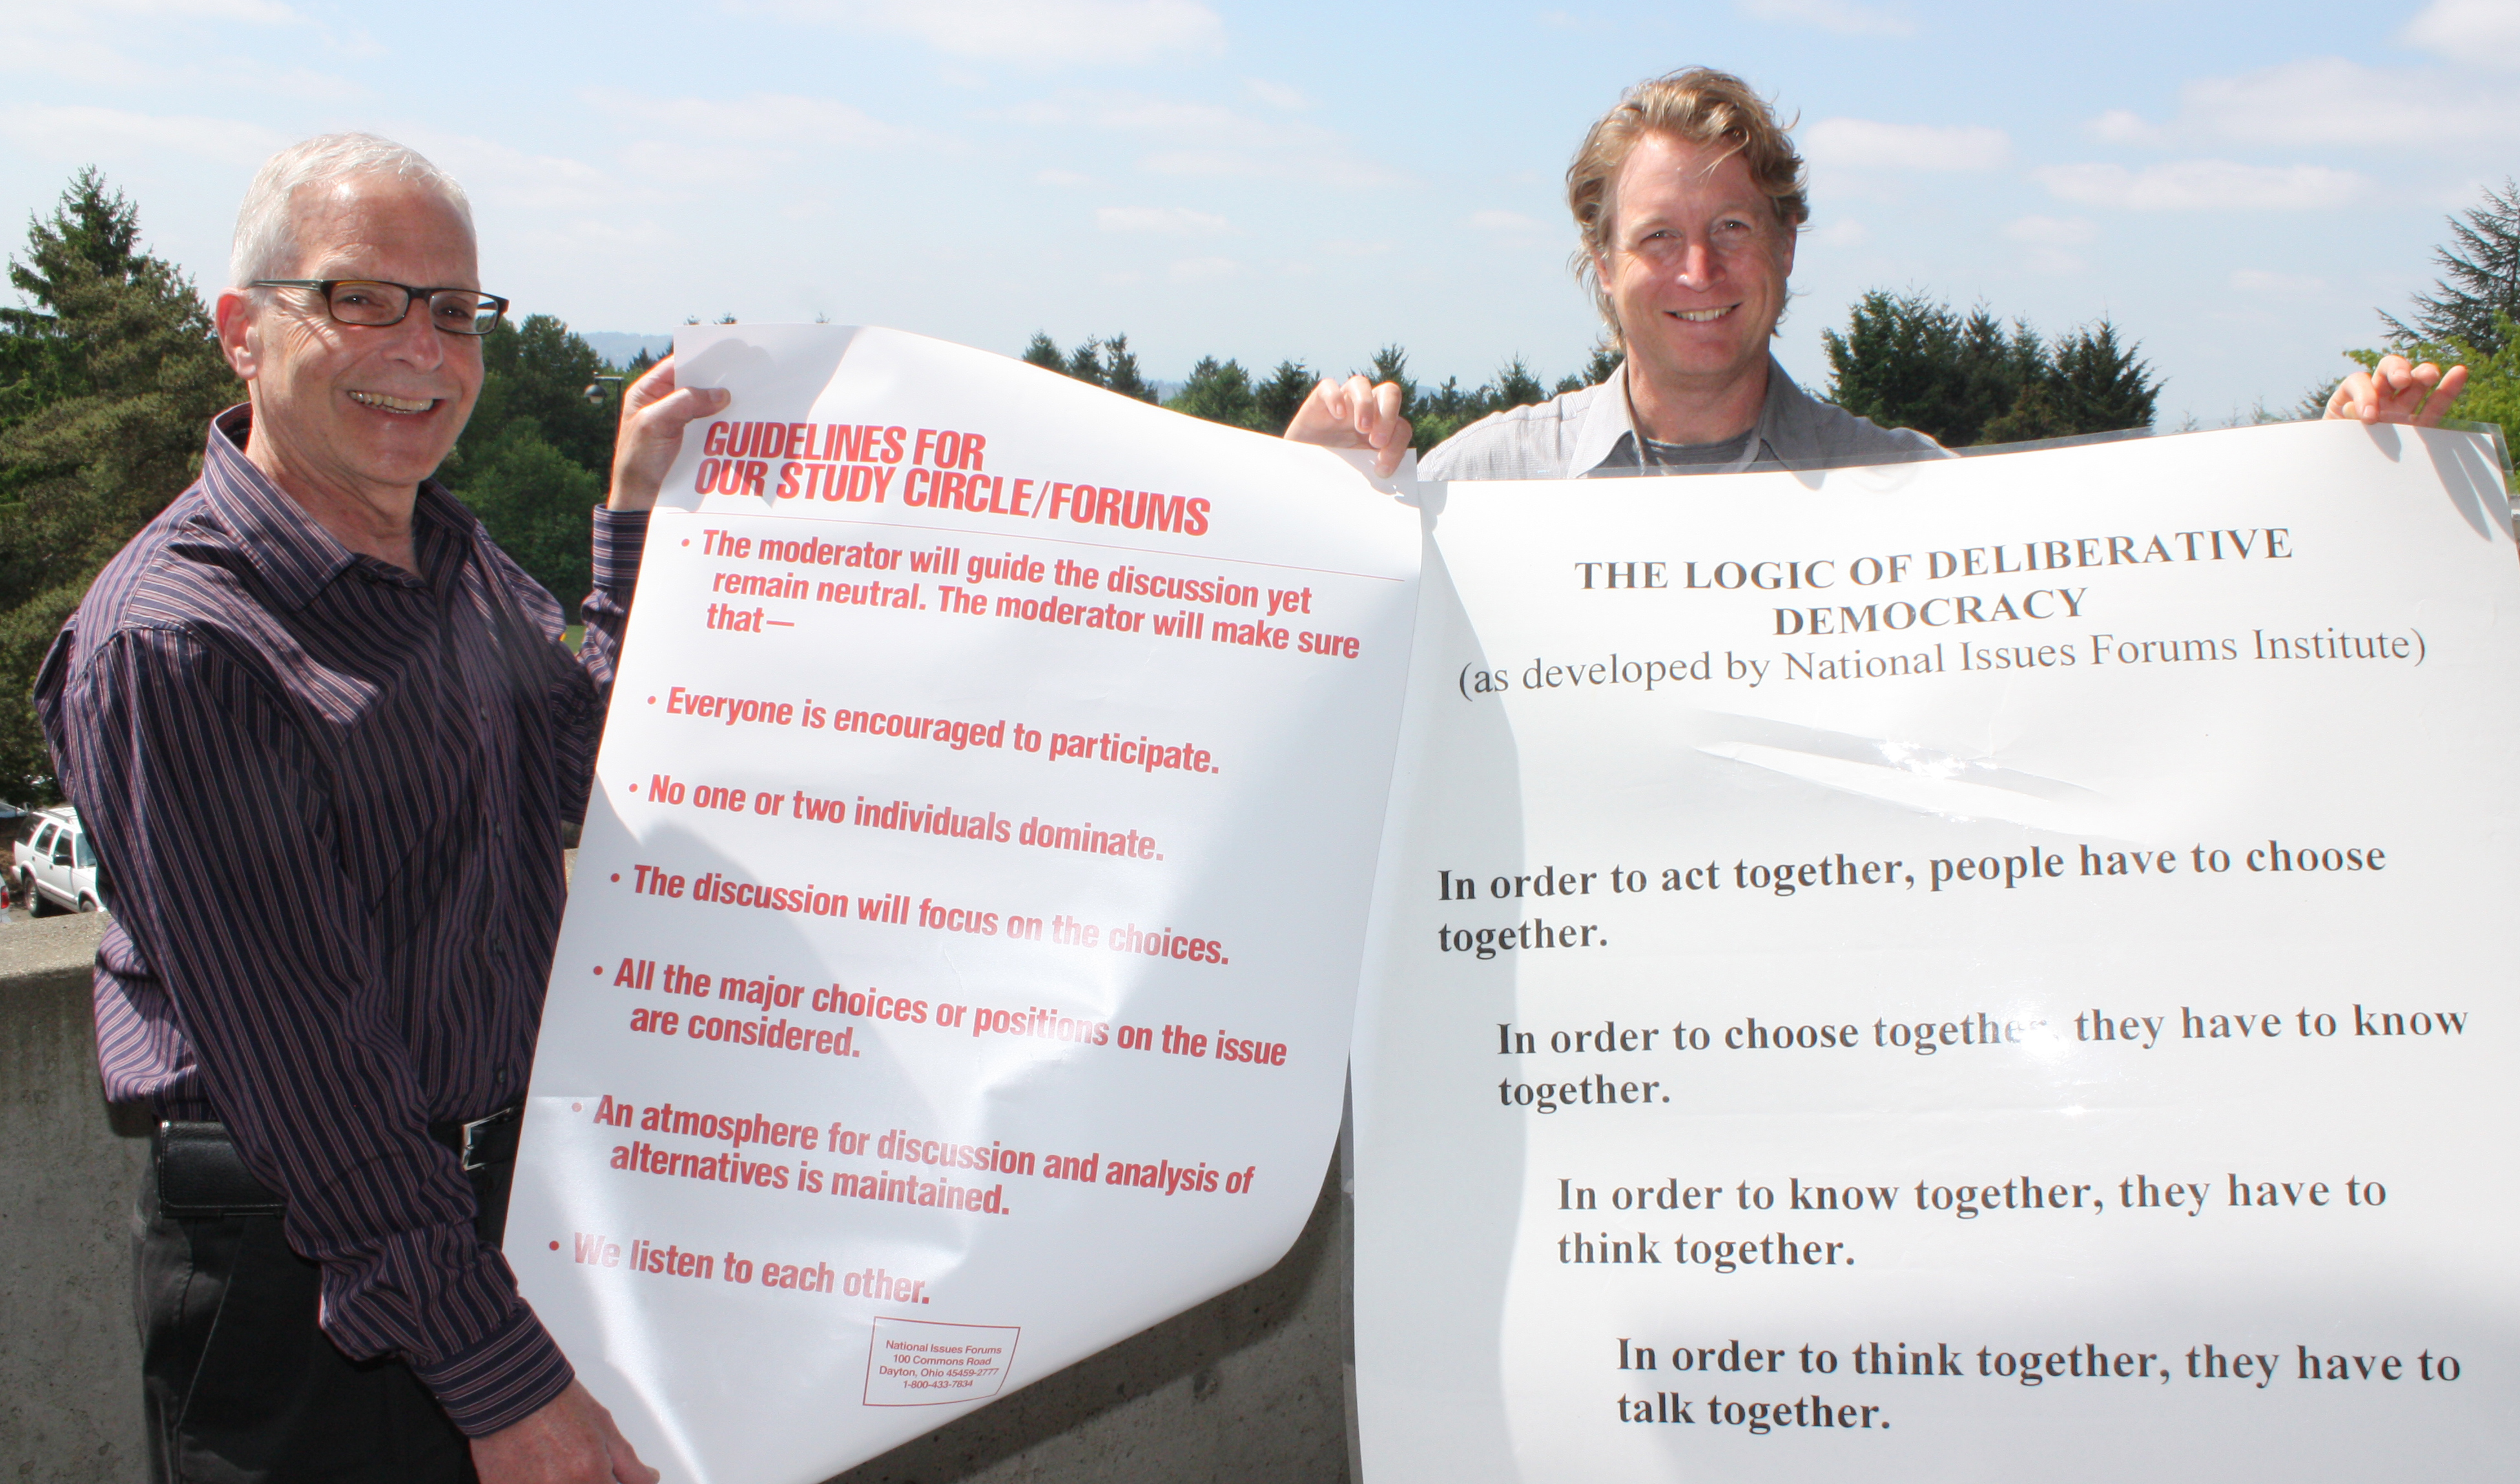 GUIDELINES FOR
OUR STUDY CIRCLE/FORUMS
• The moderator will guide the discussion yet
remain neutral. The moderator will make sure
that—
• Everyone is encouraged to participate.
• No one or two individuals dominate.
• The discussion will focus on the choices.
• All the major choices or positions on the issue
are considered.
• An atmosphere for discussion and analysis of
alternatives is maintained.
• We listen to each other.
National Issues Forums
100 Commons Road
Dayton, Ohio 45459-2777
1-800-433-7834
THE LOGIC OF DELIBERATIVE
DEMOCRACY
(as developed by National Issues Forums Institute)
In order to act together, people have to choose
together.
In order to choose together, they have to know
together.
In order to know together, they have to
think together.
In order to think together, they have to
talk together.